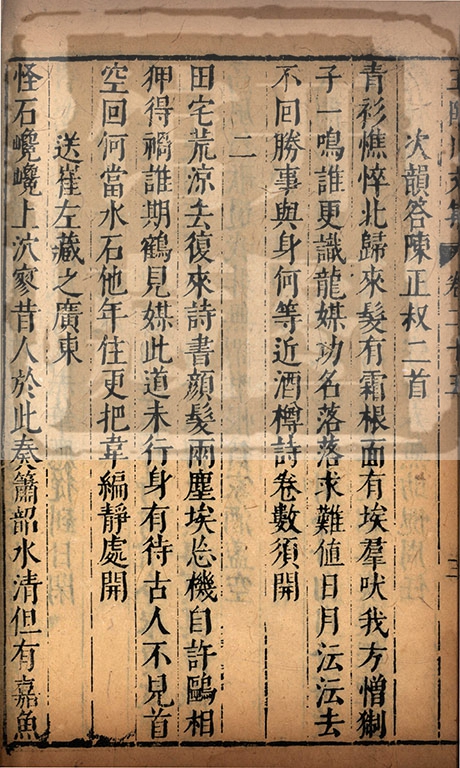 卷二十五
三
次韻答陳正叔二首
青衫憔悴北歸來髮有霜根面有埃羣吠我方憎猘
子一鳴誰更識龍媒功名落落求難值日月沄沄去
不回勝事與身何等近酒樽詩卷數須開
二
田宅荒涼去復來詩書顏髮兩塵埃忘機自許鷗相
狎得禍誰期鶴見媒此道未行身有待古人不見首
空回何當水石他年住更把韋編靜處開
送崔左藏之廣東
怪石巉巉上泬寥昔人於此奏簫韶水清但有嘉魚